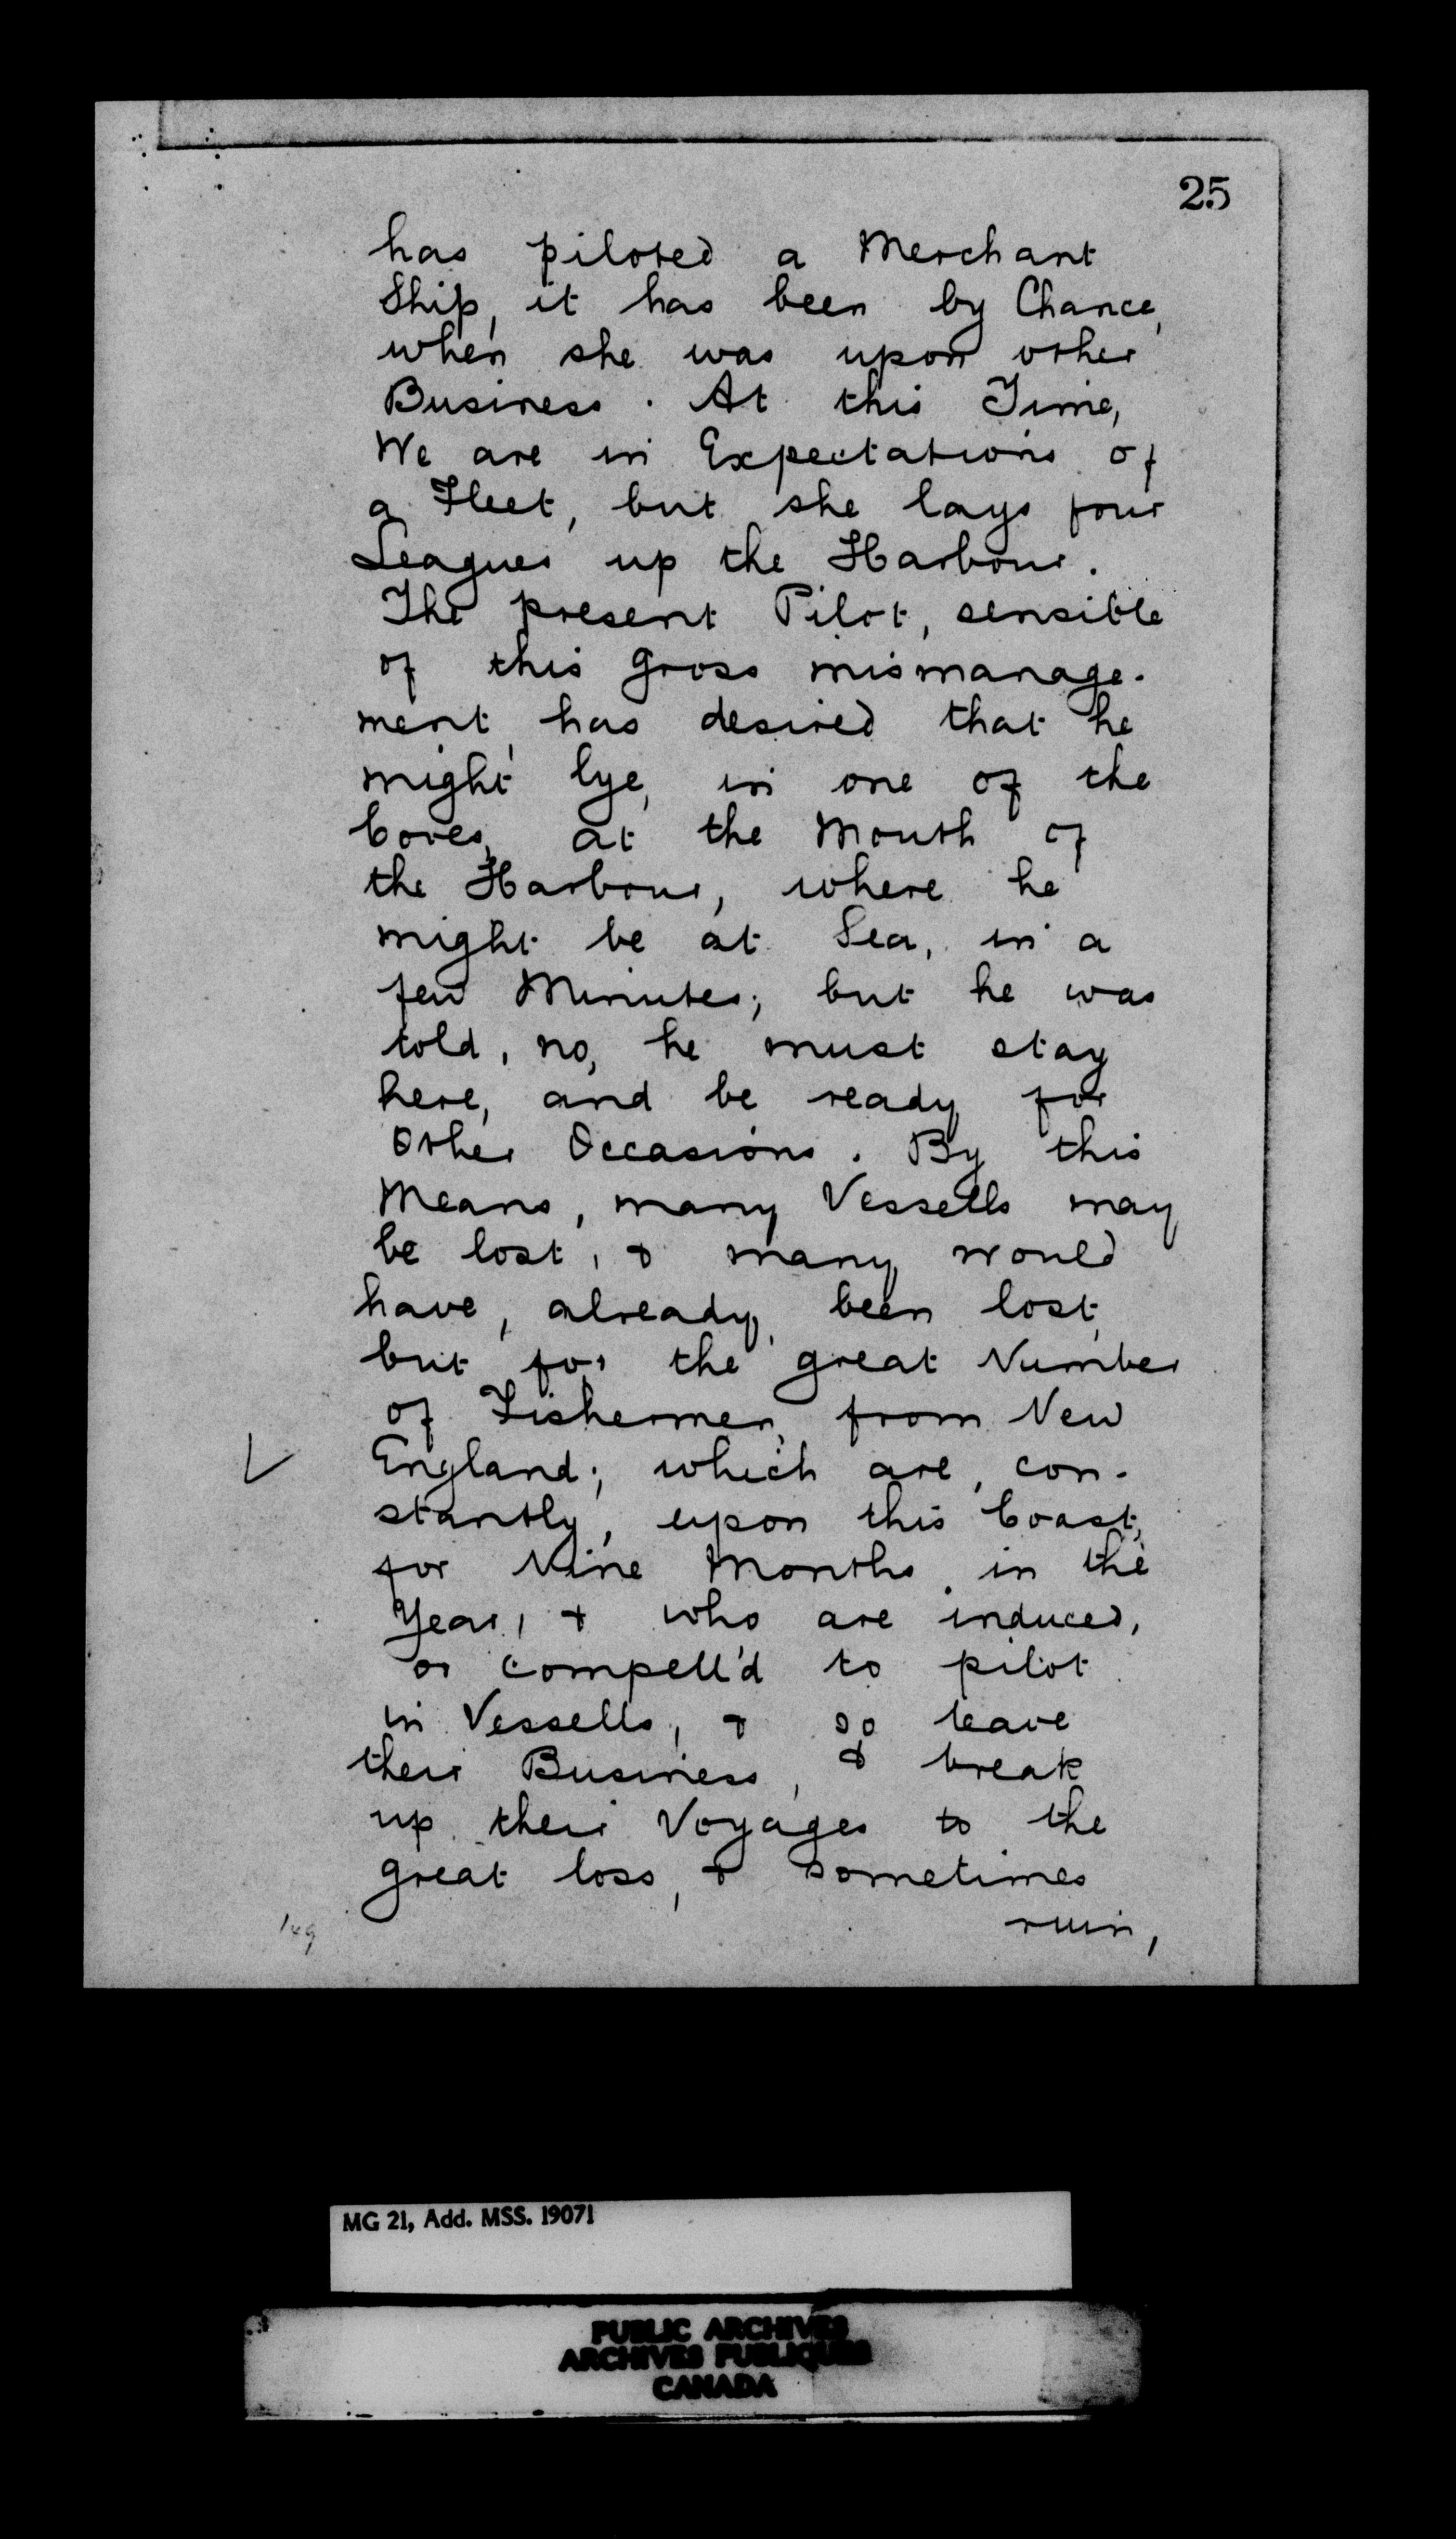 25
has piloted a Merchant
Ship, it has been by Chance,
when she was upon other
Business. At this Time,
We are in Expectations of
a Fleet, but she lays four
Leagues up the Harbour.
The present Pilot, sensible
of this gross mismanage-
ment, has desired that he
might lye, in one of the
Coves, at the Mouth of
the Harbour, where he
might be at Sea, in a
few Minutes; but he was
told, no, he must stay
here, and be ready for
Other Occasions. By this
Means, many Vessells may
be lost, & many would
have, already, been lost,
but for the great Number
of Fishermen, from New
England; which are, con-
stantly, upon this Coast,
for Nine Months, in the
Year, & who are induced,
or compell'd to pilot
in Vessells, & so leave
their Business, & break
up their Voyages to the
great loss, & sometimes
ruin,
MG 21, Add. MSS. 19071
PUBLIC ARCHIVES
ARCHIVES PUBLIQUES
CANADA